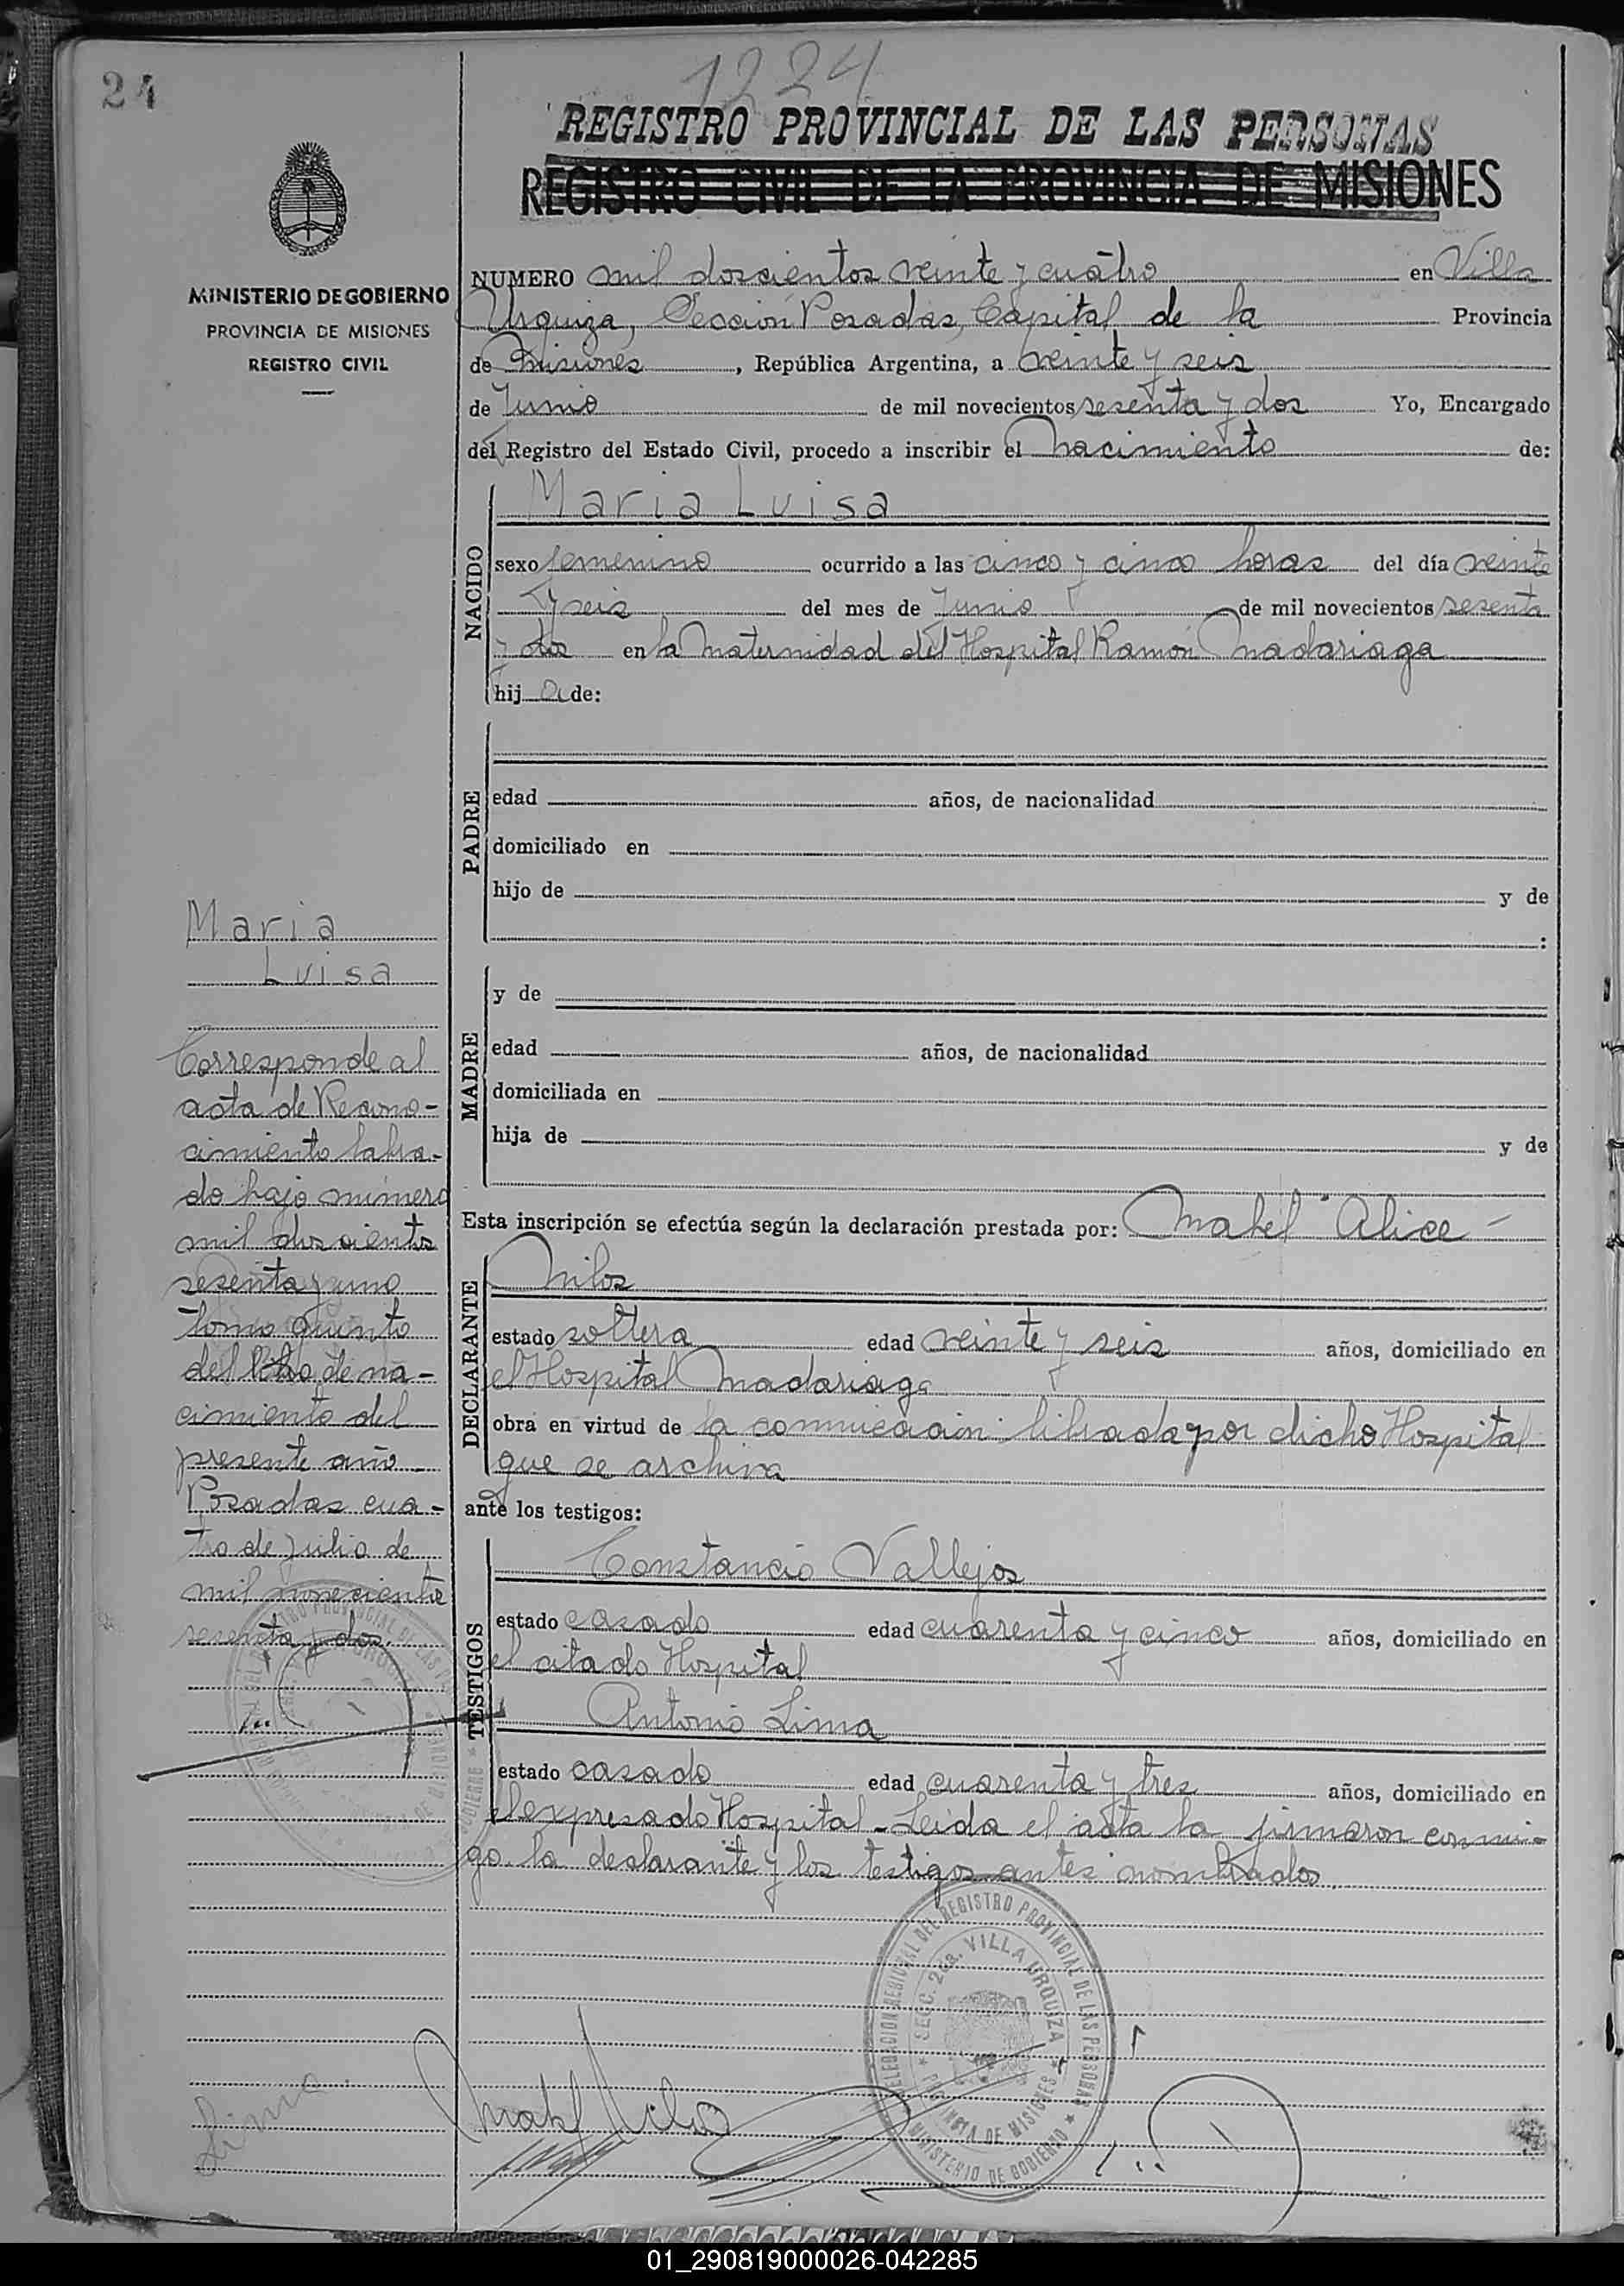 24
1224
REGISTRO PROVINCIAL DE LAS PERSONAS
REGISTRO CIVIL DE LA PROVINCIA DE MISIONES
MINISTERIO DE GOBIERNO
PROVINCIA DE MISIONES
REGISTRO CIVIL
NUMERO mil doscientos veinte y cuatro en Villa
Urquiza, Sección Posadas, Capital de la Provincia
de Misiones, República Argentina, a veinte y seis
de Junio de mil novecientos sesenta y dos Yo, Encargado
del Registro del Estado Civil, procedo a inscribir el nacimiento de:
NACIDO
Maria Luisa
sexo femenino ocurrido a las cinco y cinco horas del día veinte
y seis del mes de Junio de mil novecientos sesenta
y dos en la Maternidad del Hospital Ramón Madariaga
hija de:
PADRE
edad años, de nacionalidad
domiciliado en
hijo de y de
:
MADRE
y de
edad años, de nacionalidad
domiciliada en
hija de y de
Esta inscripción se efectúa según la declaración prestada por: Mabel Alice
DECLARANTE
Milos
estado soltera edad veinte y seis años, domiciliado en
el Hospital Madariaga
obra en virtud de la comunicación librada por dicho Hospital
que se archiva
ante los testigos:
TESTIGOS
Constancio Vallejos
estado casado edad cuarenta y cinco años, domiciliado en
el citado Hospital
Antonio Lima
estado casado edad cuarenta y tres años, domiciliado en
el expresado Hospital - Leida el acta la firmaron conmi-
go la declarante y los testigos antes nombrados
Maria
Luisa
Corresponde al
acta de Recono-
cimiento labra-
do bajo número
mil doscientos
sesenta y uno
tomo quinto
del libro de na-
cimiento del
presente año
Posadas cua-
tro de julio de
mil novecientos
sesenta y dos.
DELEGACION REGIONAL DEL REGISTRO PROVINCIAL DE LAS PERSONAS
SECC. 2da. VILLA URQUIZA
PROVINCIA DE MISIONES
MINISTERIO DE GOBIERNO
Lima
Mabel Milos
01_290819000026-042285